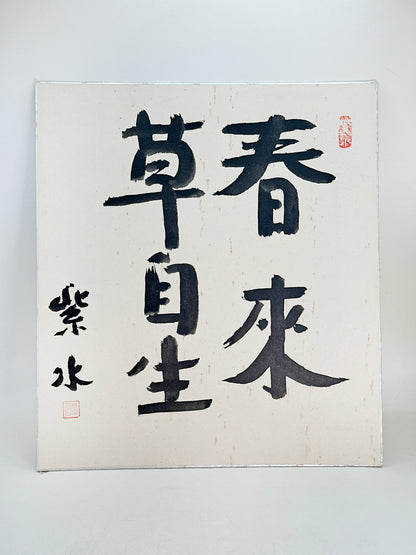 春來
草自生
紫水